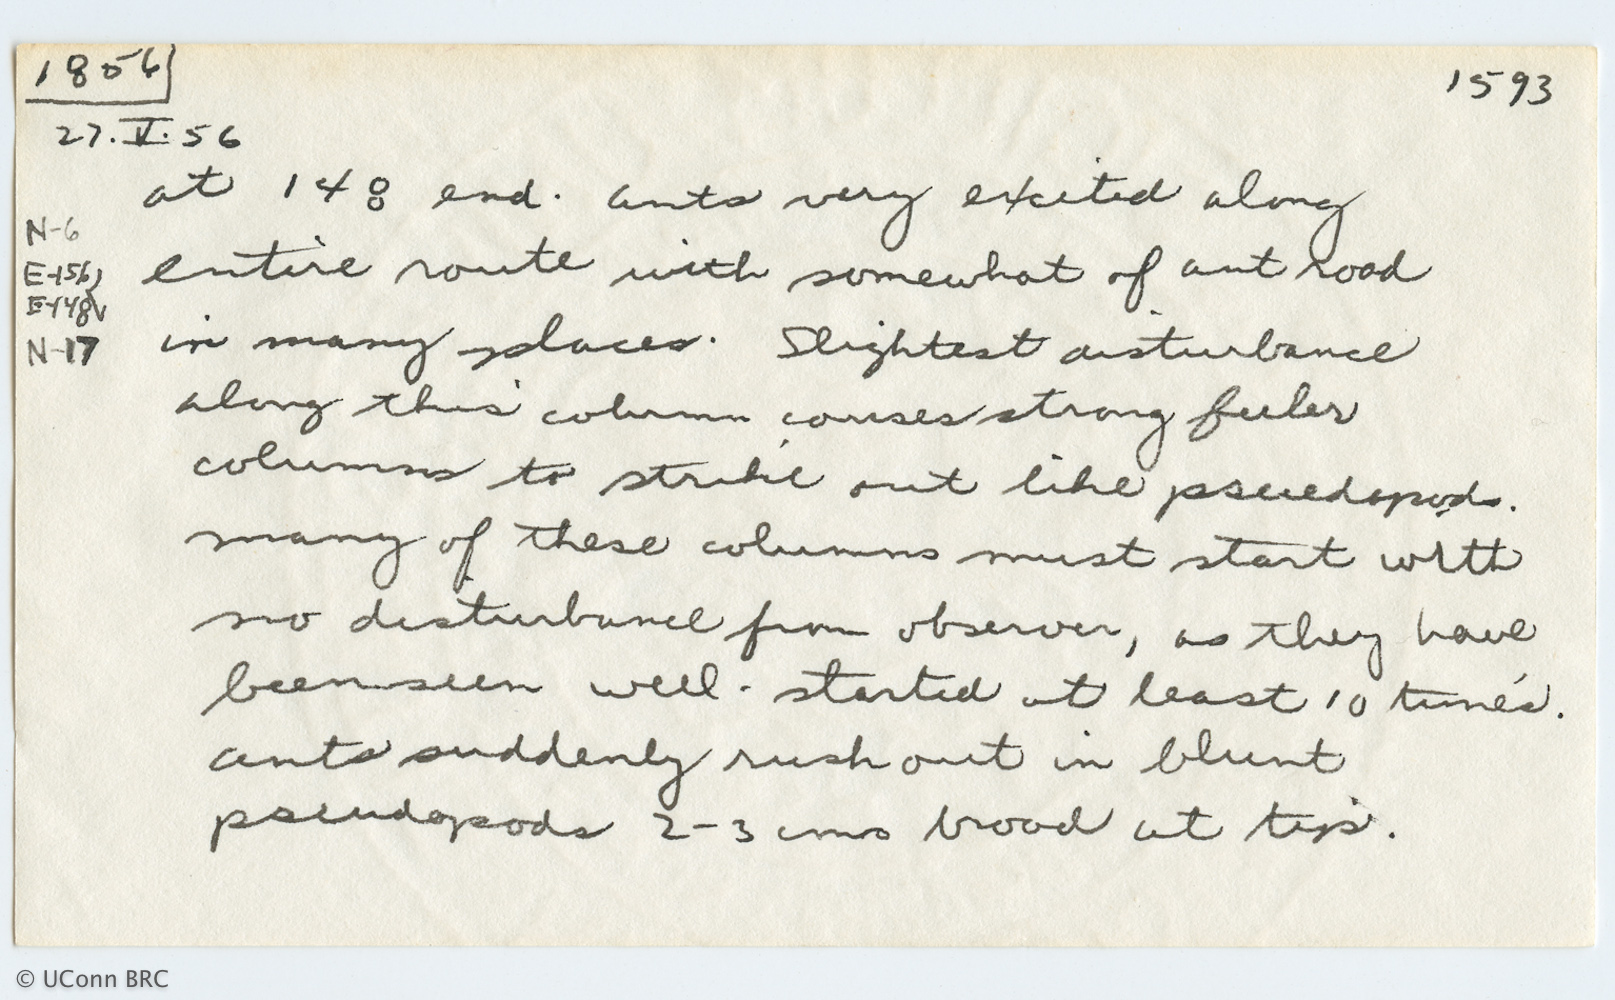 1856
1593
27.V.56
at 148 end. ants very excited along
N-6
entire route with somewhat of ant road
E-156
E-148
in many places. Slightest disturbance
N-17
along this column causes strong feeler
columns to strike out like pseuedopods.
many of these columns must start with
no disturbance from observer, as they have
been seen well. started at least 10 times.
ants suddenly rush out in blunt
pseudopods 2-3 cms broad at tips.
© UConn BRC